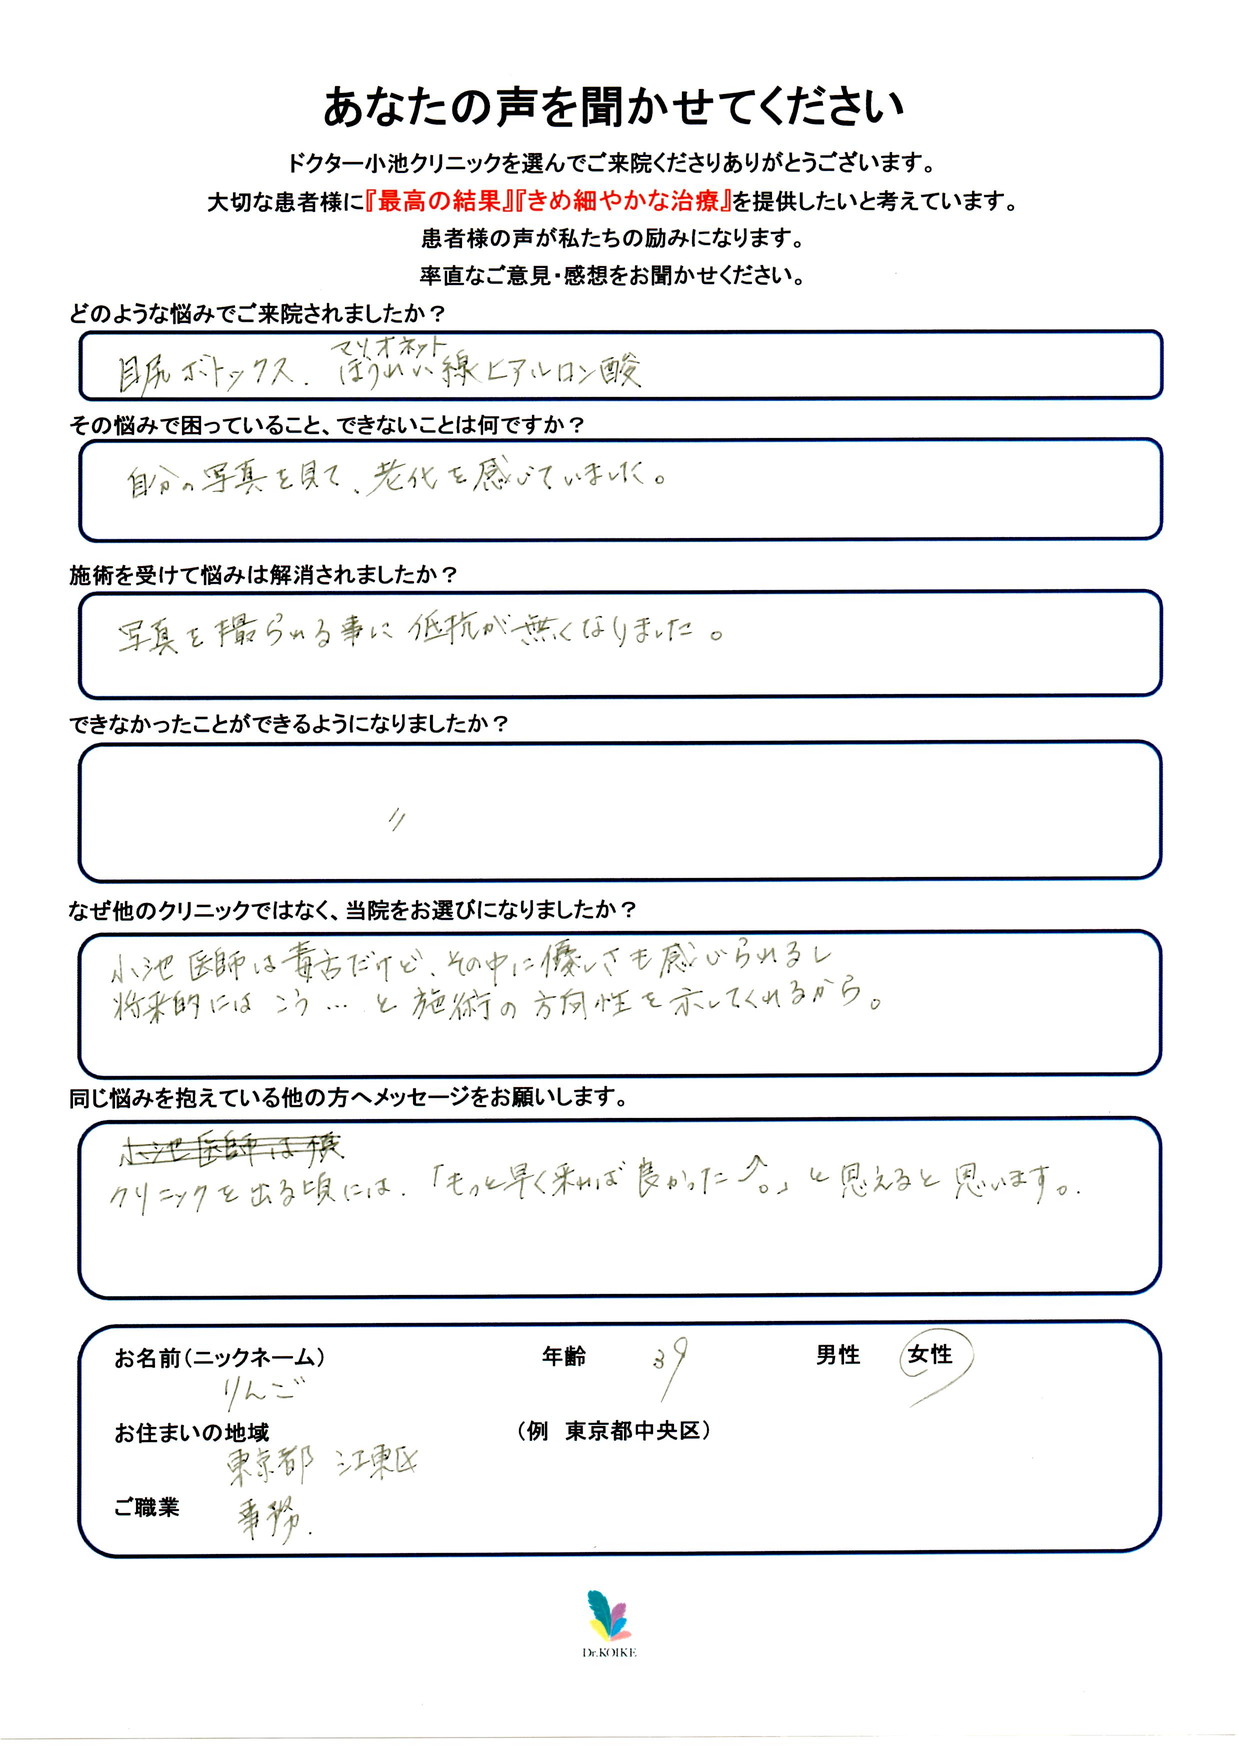 あなたの声を聞かせてください
ドクター小池クリニックを選んでご来院くださりありがとうございます。
大切な患者様に『最高の結果』『きめ細やかな治療』を提供したいと考えています。
患者様の声が私たちの励みになります。
率直なご意見・感想をお聞かせください。
どのような悩みでご来院されましたか？
マリオネット
目尻ボトックス、ほうれい線ヒアルロン酸
その悩みで困っていること、できないことは何ですか？
自分の写真を見て、老化を感じていました。
施術を受けて悩みは解消されましたか？
写真を撮られる事に低抗が無くなりました。
できなかったことができるようになりましたか？
〃
なぜ他のクリニックではなく、当院をお選びになりましたか？
小池医師は毒舌だけど、その中に優しさも感じられるし
将来的にはこう…と施術の方向性を示してくれるから。
同じ悩みを抱えている他の方へメッセージをお願いします。
小池医師は
クリニックを出る頃には、「もっと早く来れば良かった⤴。」と思えると思います。
お名前(ニックネーム) 年齢 39 男性 女性
りんご
お住まいの地域 (例 東京都中央区)
東京都 江東区
ご職業 事務.
Dr.KOIKE